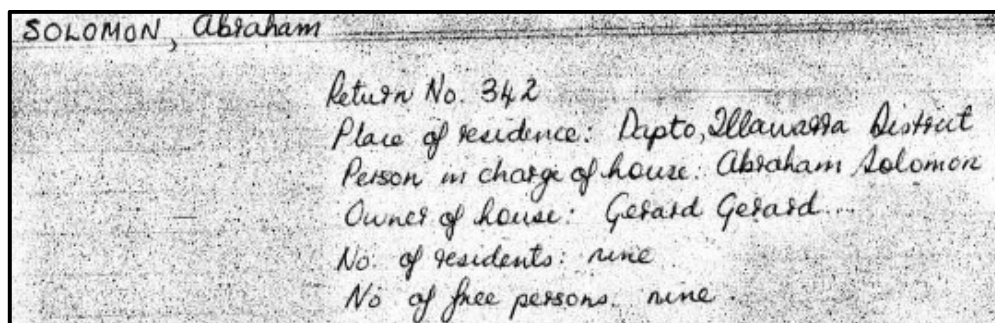 SOLOMON, Abraham
Return No. 342
Place of residence: Dapto, Illawarra District
Person in charge of house: Abraham Solomon
Owner of house: Gerard Gerard...
No. of residents: nine
No of free persons: nine.